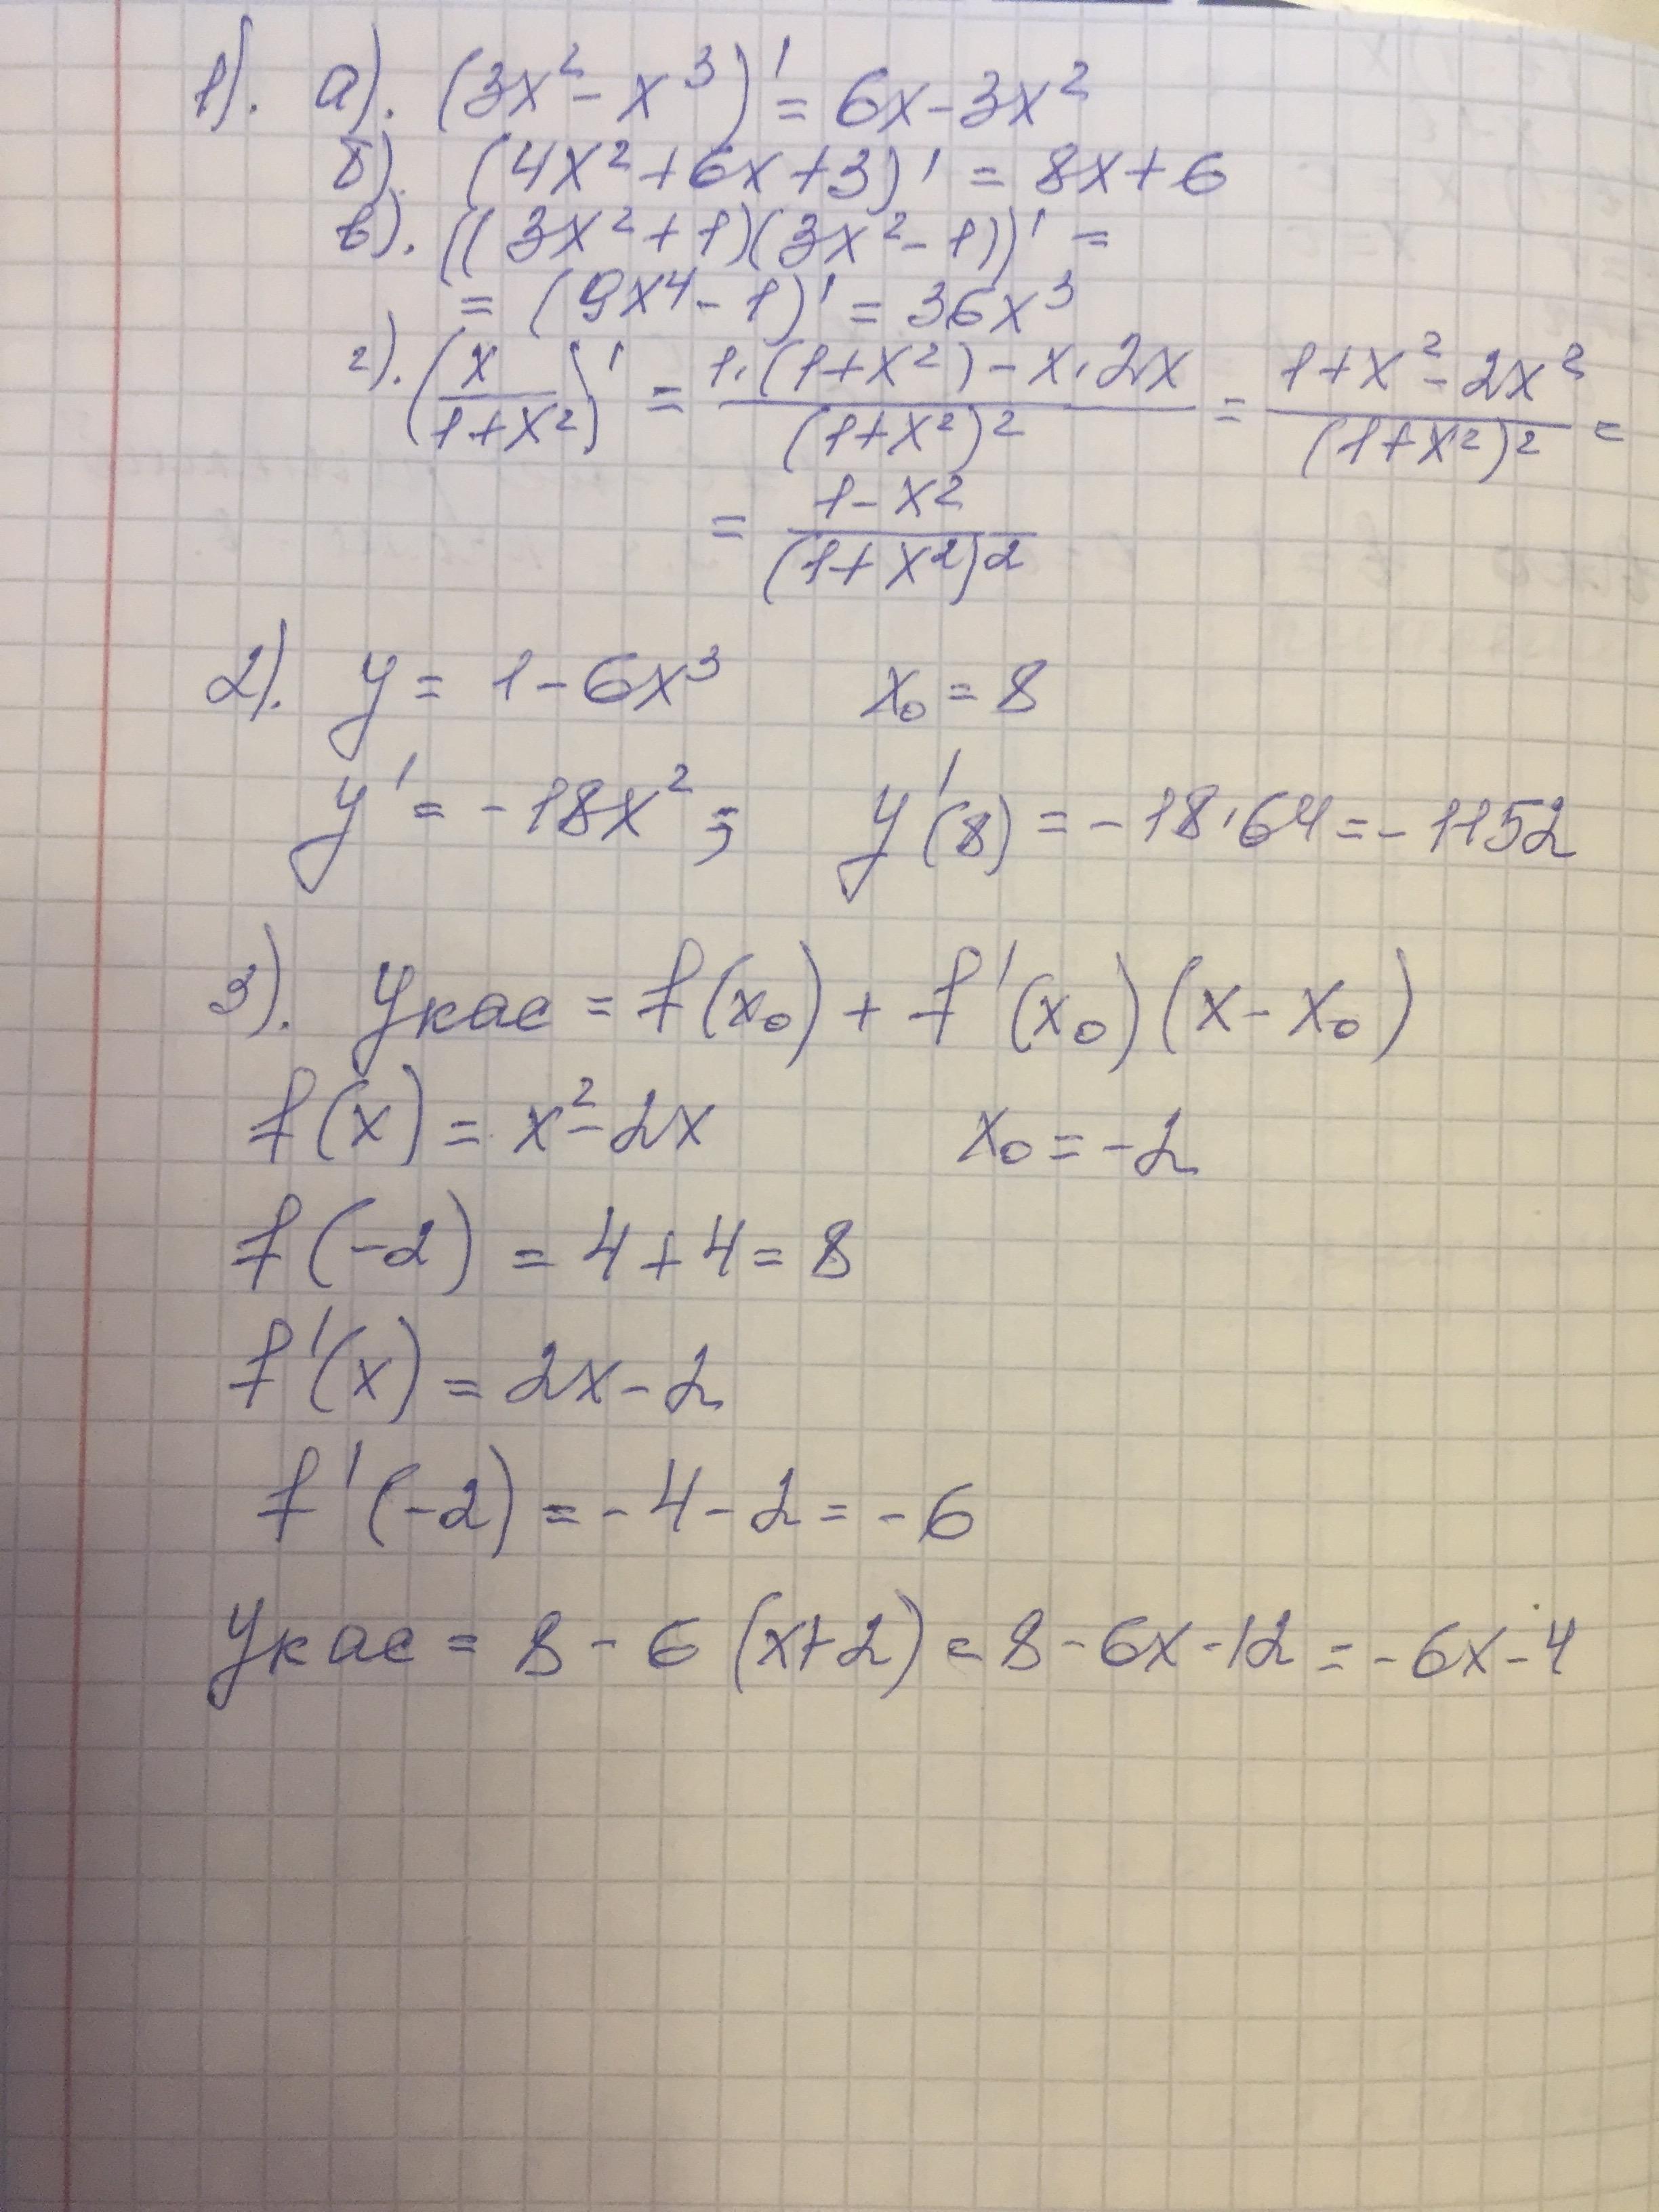 1). а). (3x² - x³)' = 6x - 3x²
б). (4x² + 6x + 3)' = 8x + 6
в). ((3x² + 1)(3x² - 1))' =
= (9x⁴ - 1)' = 36x³
г). (x/(1+x²))' = (1·(1+x²) - x·2x)/(1+x²)² = (1+x² - 2x²)/(1+x²)² =
= (1 - x²)/(1+x²)²
2). y = 1 - 6x³ x₀ = 8
y' = -18x²; y'(8) = -18·64 = -1152
3). yкас = f(x₀) + f'(x₀)(x - x₀)
f(x) = x² - 2x x₀ = -2
f(-2) = 4 + 4 = 8
f'(x) = 2x - 2
f'(-2) = -4 - 2 = -6
yкас = 8 - 6(x+2) = 8 - 6x - 12 = -6x - 4